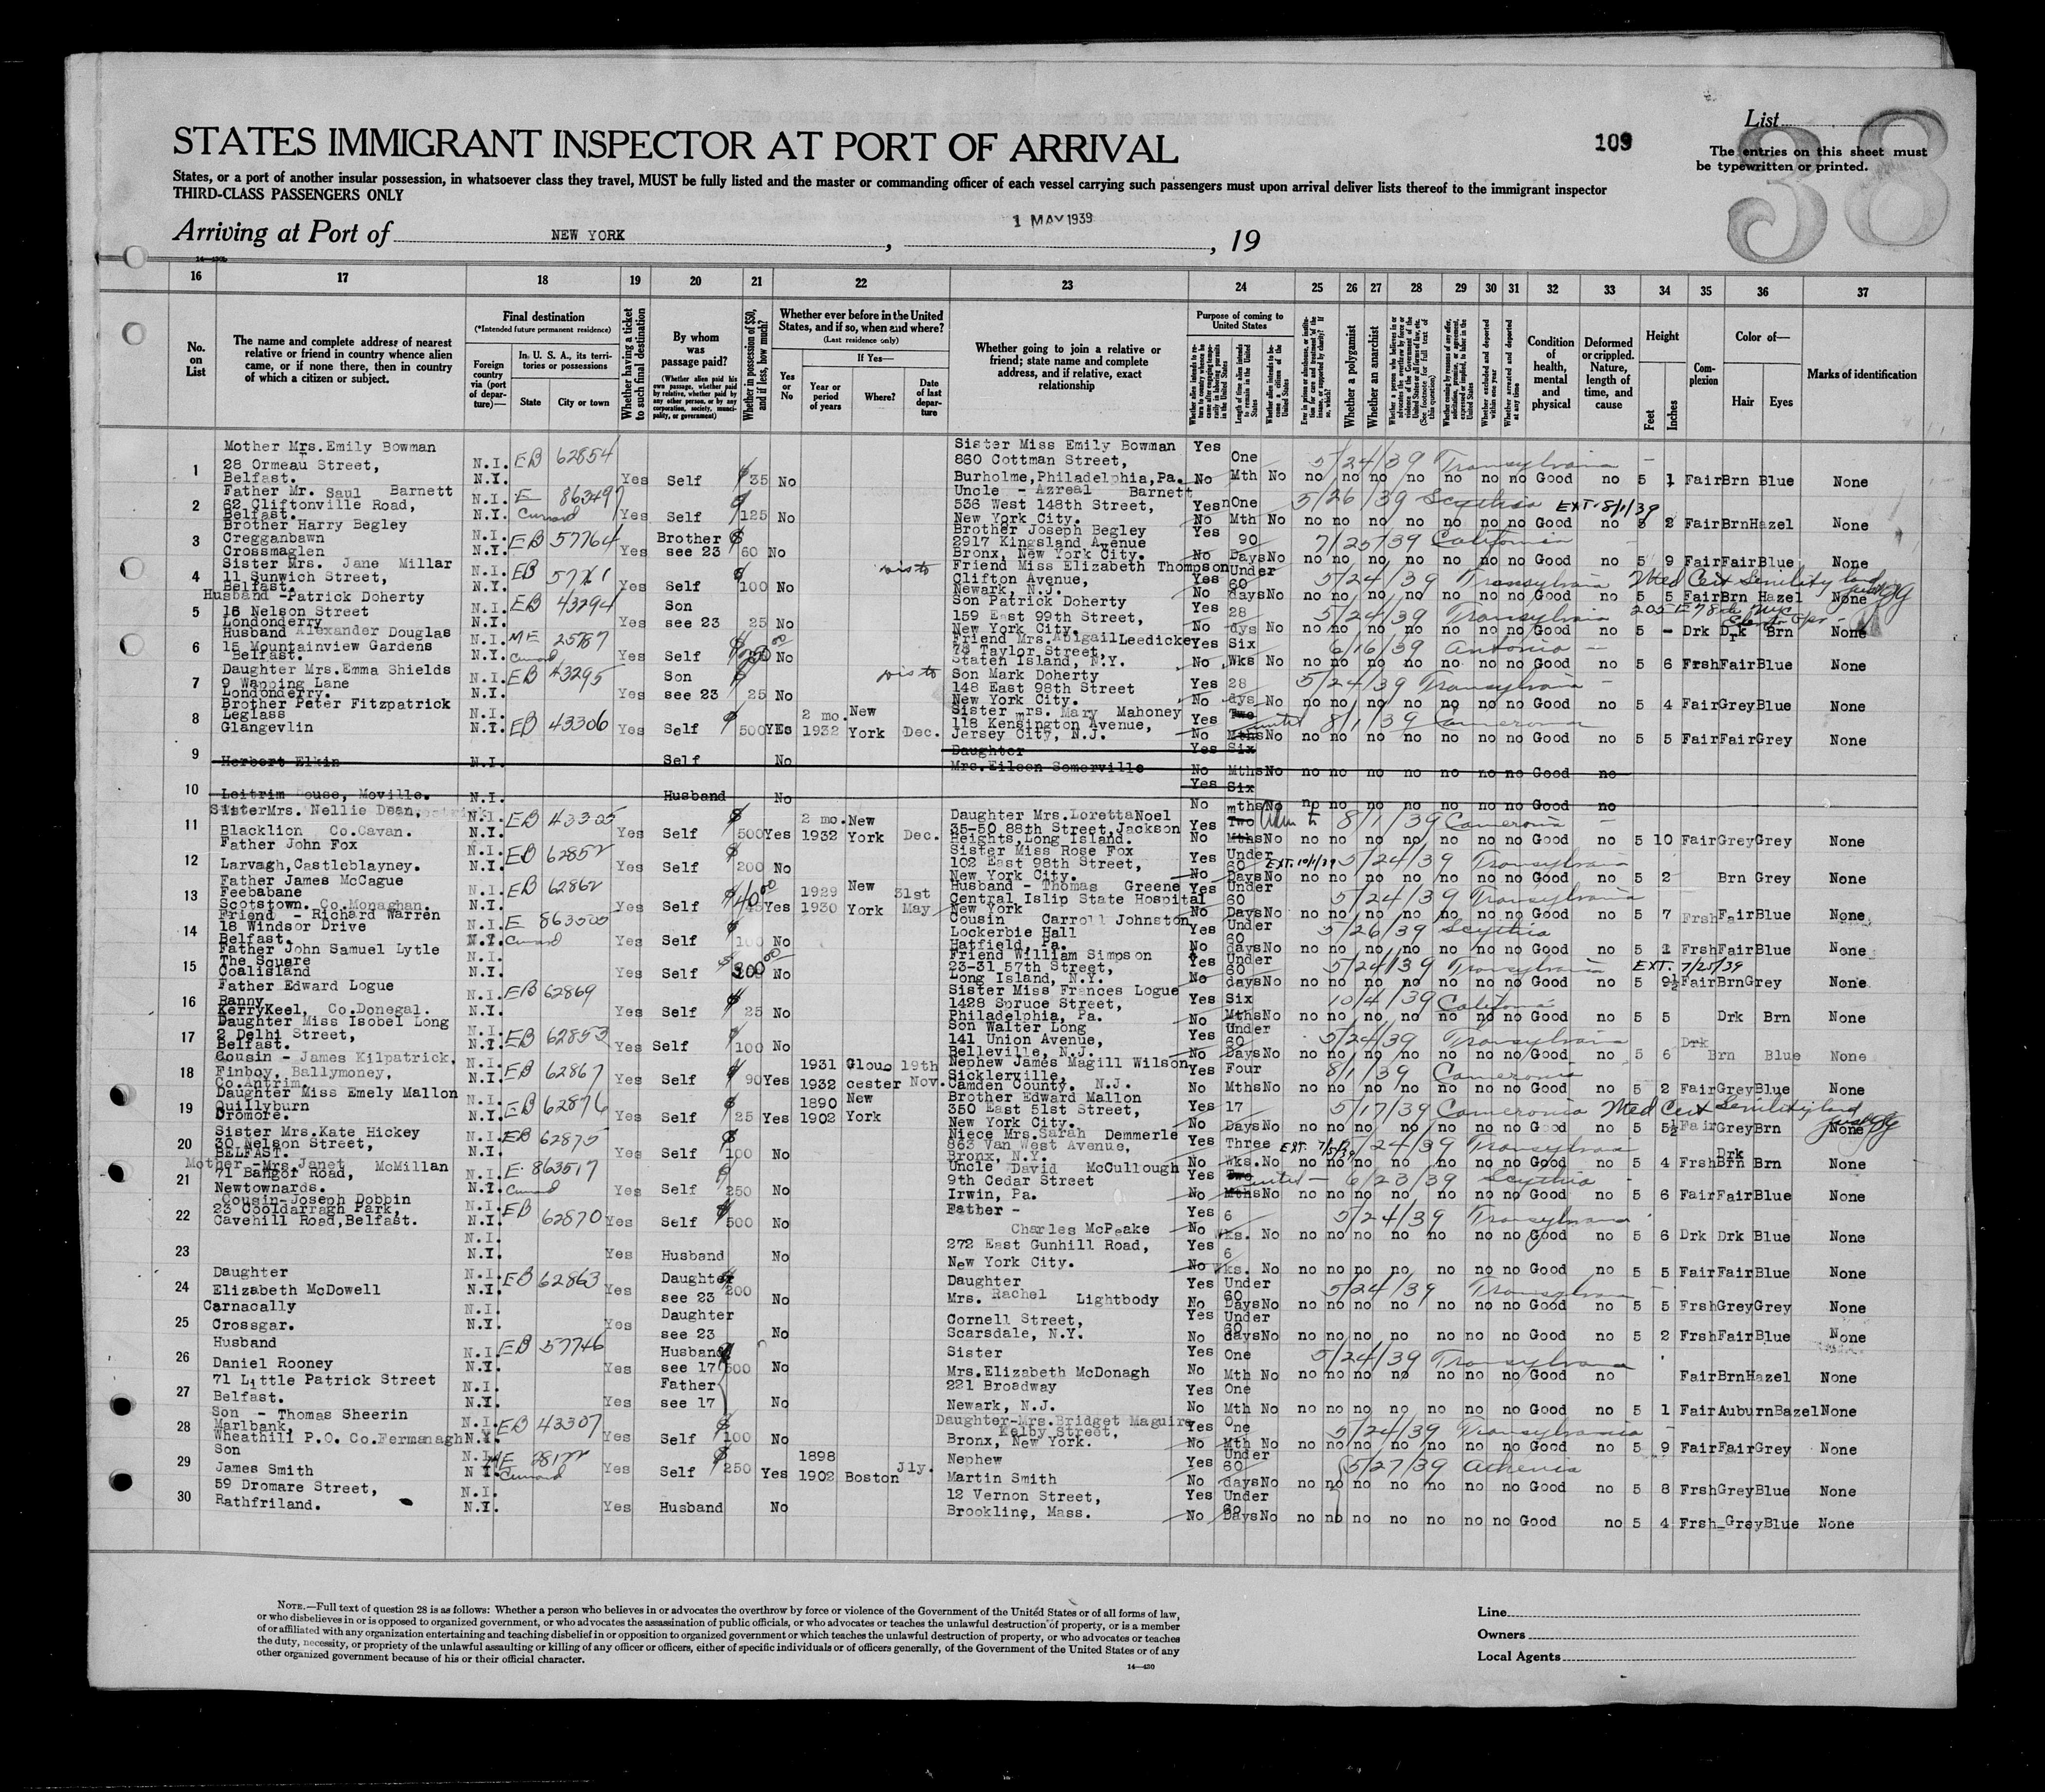 List
STATES IMMIGRANT INSPECTOR AT PORT OF ARRIVAL
109
38
The entries on this sheet must
be typewritten or printed.
States, or a port of another insular possession, in whatsoever class they travel, MUST be fully listed and the master or commanding officer of each vessel carrying such passengers must upon arrival deliver lists thereof to the immigrant inspector
THIRD-CLASS PASSENGERS ONLY
Arriving at Port of NEW YORK, 1 MAY 1939, 19
16 17 18 19 20 21 22 23 24 25 26 27 28 29 30 31 32 33 34 35 36 37
No. on List
The name and complete address of nearest relative or friend in country whence alien came, or if none there, then in country of which a citizen or subject.
Final destination
(*Intended future permanent residence)
Foreign country via (port of departure)—
In U. S. A., its territories or possessions
State
City or town
Whether having a ticket to such final destination
By whom was passage paid?
(Whether alien paid his own passage, whether paid by relative, whether paid by any other person, or by any corporation, society, municipality, or government)
Whether in possession of $50, and if less, how much?
Whether ever before in the United States, and if so, when and where?
(Last residence only)
Yes or No
If Yes—
Year or period of years
Where?
Date of last departure
Whether going to join a relative or friend; state name and complete address, and if relative, exact relationship
Purpose of coming to United States
Length of time alien intends to remain in the United States
Whether alien intends to become a citizen of the United States
Whether a polygamist
Whether an anarchist
Condition of health, mental and physical
Deformed or crippled. Nature, length of time, and cause
Height
Feet
Inches
Complexion
Color of—
Hair
Eyes
Marks of identification
Mother Mrs.Emily Bowman Sister Miss Emily Bowman Yes
1 28 Ormeau Street, N.I. EB 62854 860 Cottman Street, One 5/24/39 Transylvania
Belfast. N.Y. Yes Self $35 No Burholme,Philadelphia,Pa. No Mth no no no no no no no no Good no 5 1 Fair Brn Blue None
Father Mr. Saul Barnett N.I. E 863497 Uncle - Azreal Barnett
2 62 Cliftonville Road, Cunard 536 West 148th Street, Yes One 5/26/39 Scythia EXT. 8/1/39
Belfast. N.I. Yes Self $125 No New York City. No Mth No no no no no no no no Good no 5 2 Fair Brn Hazel None
Brother Harry Begley Brother Joseph Begley
3 Cregganbawn N.I. EB 57764 Brother $ 2917 Kingsland Avenue Yes 90 7/25/39 California
Crossmaglen N.Y. Yes see 23 60 No Bronx, New York City. No Days No no no no no no no no Good no 5 9 Fair Fair Blue None
Sister Mrs. Jane Millar Friend Miss Elizabeth Thompson Under
4 11 Sunwich Street, N.I. EB Clifton Avenue, Yes 60 5/24/39 Transylvania Med Cert Senility
Belfast. N.Y. Yes Self $100 No Newark, N.J. No days No no no no no no no no Good no 5 5 Fair Brn Hazel None
Husband -Patrick Doherty N.I. EB 43294 Son Son Patrick Doherty
5 16 Nelson Street 159 East 99th Street, Yes 28 5/24/39 Transylvania
Londonderry N.Y. Yes see 23 25 No New York City. No dys No no no no no no no no Good no 5 - Drk Drk Brn None
Husband Alexander Douglas N.I. ME 25787 Friend Mrs. Abigail Leedicke
6 15 Mountainview Gardens Cunard 78 Taylor Street, Yes Six 6/16/39 Antonia
Belfast. N.I. Yes Self No Staten Island, N.Y. No Wks No no no no no no no no Good no 5 6 Frsh Fair Blue None
Daughter Mrs.Emma Shields Son Son Mark Doherty
7 9 Wapping Lane N.I. EB 43295 148 East 98th Street Yes 28 5/24/39 Transylvania
Londonderry. N.I. Yes see 23 25 No New York City. No dys No no no no no no no no Good no 5 4 Fair Grey Blue None
Brother Peter Fitzpatrick Sister mrs. Mary Mahoney
8 Leglass N.I. EB 43306 2 mo. New 118 Kensington Avenue, Yes Two 8/1/39 Cameronia
Glangevlin N.Y. Yes Self $500 Yes 1932 York Dec. Jersey City, N.J. No Mths No no no no no no no no Good no 5 5 Fair Fair Grey None
9 Herbert Elkin N.I. Self No Daughter Mrs.Eileen Somerville Yes Six No Mths No no no no no no no no Good no
10 Leitrim House, Moville. N.I. Husband No Yes Six No mths No no no no no no no no Good no
Sister Mrs. Nellie Dean, N.I. EB 43305 2 mo. New Daughter Mrs.Loretta Noel
11 Blacklion Co.Cavan. N.Y. Yes Self $500 Yes 1932 York Dec. 35-50 88th Street,Jackson Yes Two 8/1/39 Cameronia
Heights,Long Island. No Mths No no no no no no no no Good no 5 10 Fair Grey Grey None
Father John Fox N.I. EB 62852 Sister Miss Rose Fox
12 Larvagh,Castleblayney. N.Y. Yes Self $200 No 102 East 98th Street, Yes Under 60 EXT. 10/1/39 5/24/39 Transylvania
New York City. No Days No no no no no no no no Good no 5 2 Brn Grey None
Father James McCague Husband - Thomas Greene
13 Feebabane N.I. EB 62862 $40 00 1929 New 31st Central Islip State Hospital Yes Under 60 5/24/39 Transylvania
Scotstown. Co.Monaghan. N.Y. Yes Self Yes 1930 York May New York No Days No no no no no no no no Good no 5 7 Frsh Fair Blue None
Friend - Richard Warren Cousin Carroll Johnston
14 18 Windsor Drive N.I. E Cunard Lockerbie Hall Yes Under 60 5/26/39 Scythia
Belfast. N.I. Yes Self $100 No Hatfield, Pa. No days No no no no no no no no Good no 5 1 Frsh Fair Blue None
Father John Samuel Lytle Friend William Simpson
15 The Square N.I. 23-31 57th Street, Yes Under 60 5/24/39 Transylvania EXT. 7/25/39
Coalisland N.Y. Yes Self No Long Island, N.Y. No days No no no no no no no no Good no 5 9½ Fair Brn Grey None
Father Edward Logue Sister Miss Frances Logue
16 Ranny N.I. EB 62869 1428 Spruce Street, Yes Six 10/4/39 California
KerryKeel, Co.Donegal. N.Y. Yes Self $25 No Philadelphia, Pa. No Mths No no no no no no no no Good no 5 5 Drk Brn None
Daughter Miss Isobel Long Son Walter Long
17 2 Delhi Street, N.I. EB 62853 141 Union Avenue, Yes Under 60 5/24/39 Transylvania
Belfast. N.I. Yes Self $100 No Belleville, N.J. No Days No no no no no no no no Good no 5 6 Drk Brn Blue None
Cousin - James Kilpatrick, Nephew James Magill Wilson
18 Finboy, Ballymoney, N.I. EB 62867 1931 Glou- 19th Sicklerville, Yes Four 8/1/39 Cameronia
Co.Antrim. N.I. Yes Self $90 Yes 1932 cester Nov. Camden County. N.J. No Mths No no no no no no no no Good no 5 2 Fair Grey Blue None
Daughter Miss Emely Mallon Brother Edward Mallon
19 Quillyburn N.I. EB 62876 1890 New 350 East 51st Street, Yes 17 5/17/39 Cameronia Med Cert Senility
Dromore. N.Y. Yes Self $25 Yes 1902 York New York City. No Days No no no no no no no no Good no 5 5½ Fair Grey Brn None
Sister Mrs.Kate Hickey Niece Mrs.Sarah Demmerle
20 30 Nelson Street, N.I. EB 62875 863 Van West Avenue, Yes Three EXT. 5/24/39 Transylvania
BELFAST. N.I. Yes Self $100 No Bronx, N.Y. No Wks. No no no no no no no no Good no 5 4 Frsh Drk Brn Brn None
Mother -Mrs.Janet McMillan Uncle David McCullough
21 71 Bangor Road, N.I. E. 863517 Cunard 9th Cedar Street Yes Two 6/23/39 Scythia
Newtownards. N.I. Yes Self $250 No Irwin, Pa. No Mths No no no no no no no no Good no 5 6 Fair Fair Blue None
Cousin-Joseph Dobbin Father -
22 23 Cooldarragh Park, N.I. EB 62870 Charles McPeake Yes 6 5/24/39 Transylvania
Cavehill Road,Belfast. N.Y. Yes Self $500 No No Wks. No no no no no no no no Good no 5 6 Drk Drk Blue None
23 N.I. N.Y. Yes Husband No 272 East Gunhill Road, New York City. Yes 6 No Wks. No no no no no no no no Good no 5 5 Fair Fair Blue None
Daughter N.I. EB 62863 Daughter $200 Daughter
24 Elizabeth McDowell N.Y. Yes see 23 No Mrs. Rachel Lightbody Yes Under 60 5/24/39 Transylvania
No Days No no no no no no no no Good no 5 5 Frsh Grey Grey None
Carnacally N.I. Daughter Cornell Street, Yes Under 60
25 Crossgar. N.Y. Yes see 23 No Scarsdale, N.Y. No days No no no no no no no no Good no 5 2 Frsh Fair Blue None
Husband N.I. EB 57746 Husband Sister Yes One 5/24/39 Transylvania
26 Daniel Rooney N.Y. Yes see 17 500 No Mrs.Elizabeth McDonagh No Mth No no no no no no no no Good no Fair Brn Hazel None
27 71 Little Patrick Street N.I. Father 221 Broadway Yes One
Belfast. N.Y. Yes see 17 No Newark, N.J. No Mth No no no no no no no no Good no 5 1 Fair Auburn Bazel None
Son - Thomas Sheerin Daughter-Mrs.Bridget Maguire
28 Marlbank, N.I. EB 43307 Kelby Street, Yes One 5/24/39 Transylvania
Wheathill P.O. Co.Fermanagh N.Y. Yes Self $100 No Bronx, New York. No Mth No no no no no no no no Good no 5 9 Fair Fair Grey None
Son N.I. ME Cunard 1898 Nephew Yes Under 60 5/27/39 Athenia
29 James Smith N.I. Yes Self $250 Yes 1902 Boston Jly. Martin Smith No days No no no no no no no no Good no 5 8 Frsh Grey Blue None
30 59 Dromare Street, N.I. 12 Vernon Street, Yes Under 60
Rathfriland. N.Y. Yes Husband No Brookline, Mass. No Days No no no no no no no no Good no 5 4 Frsh Grey Blue None
NOTE.—Full text of question 28 is as follows: Whether a person who believes in or advocates the overthrow by force or violence of the Government of the United States or of all forms of law,
or who disbelieves in or is opposed to organized government, or who advocates the assassination of public officials, or who advocates or teaches the unlawful destruction of property, or is a member
of or affiliated with any organization entertaining and teaching disbelief in or opposition to organized government or which teaches the unlawful destruction of property, or who advocates or teaches
the duty, necessity, or propriety of the unlawful assaulting or killing of any officer or officers, either of specific individuals or of officers generally, of the Government of the United States or of any
other organized government because of his or their official character.
14—430
Line
Owners
Local Agents